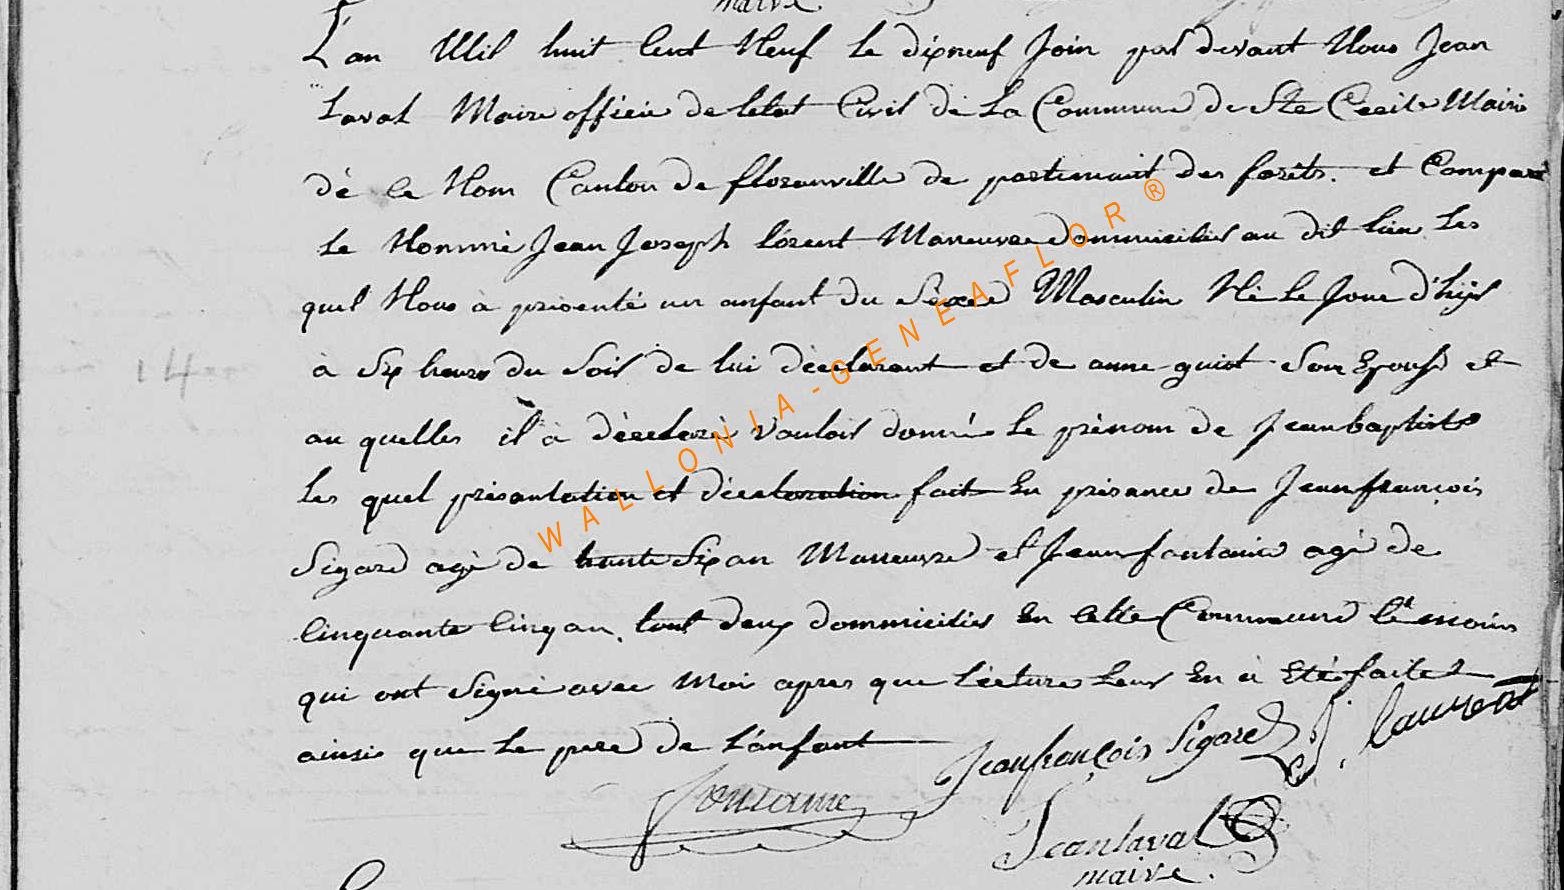 maire
L'an Mil huit Cent Neuf le dixneuf Join par devant Nous Jean
Laval Maire officié de letat Civil de la Commune de Ste Cecile Mairie
dè ce Nom Canton de floranville de partemant des forêts. et Comparé
le Nommé Jean Joseph lorent Maneuvre dommicilié au dit lieu les
quel Nous à présenté un anfant du Sexe Masculin Né le Jour d'hijé
à Six heure du Soir de lui déeclarant et de anne guiot Son Epouse et
au quelles il à déeclaré vouloir donné le prénom de Jeanbaptiste
les quel présantation et déeclaration fait En présance de Jeanfrançois
Sigard agé de trente Six an Maneuvre et Jean fontaine agé de
Cinquante Cinq an. tout deux dommiciliés En Cette Commune témoins
qui ont Signé avec Moi apres que lécture leur En à Eté faite
ainsi que le pere de l'anfant Jeanfrançois Sigard J. laurent
fontaine
Jean laval
maire.
14
WALLONIA-GENEAFLOR®